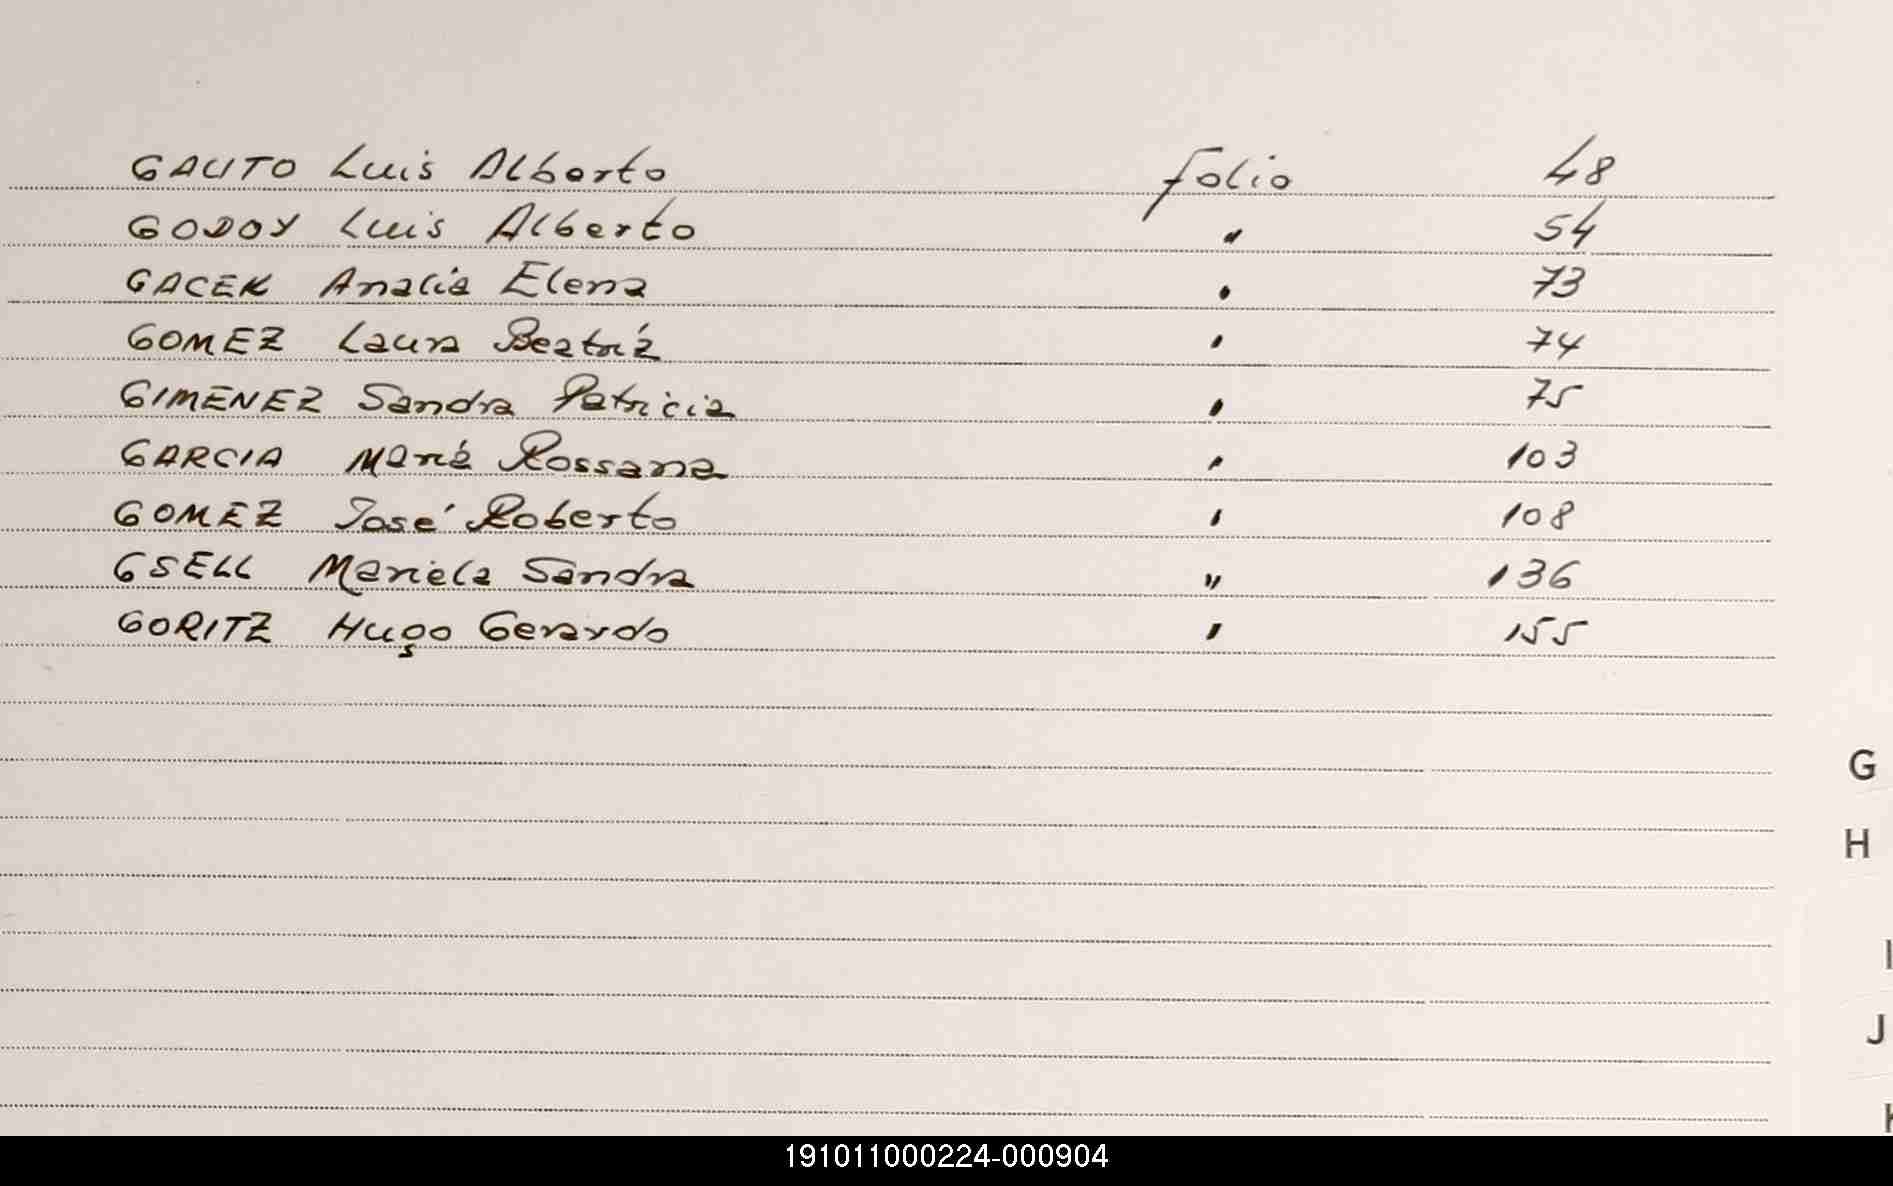 GAUTO Luis Alberto folio 48
GODOY Luis Alberto " 54
GACEK Analia Elena " 73
GOMEZ Laura Beatríz " 74
GIMENEZ Sandra Patricia " 75
GARCIA María Rossana " 103
GOMEZ José Roberto " 108
GSELL Mariela Sandra " 136
GORITZ Hugo Gerardo " 155
G
H
I
J
191011000224-000904